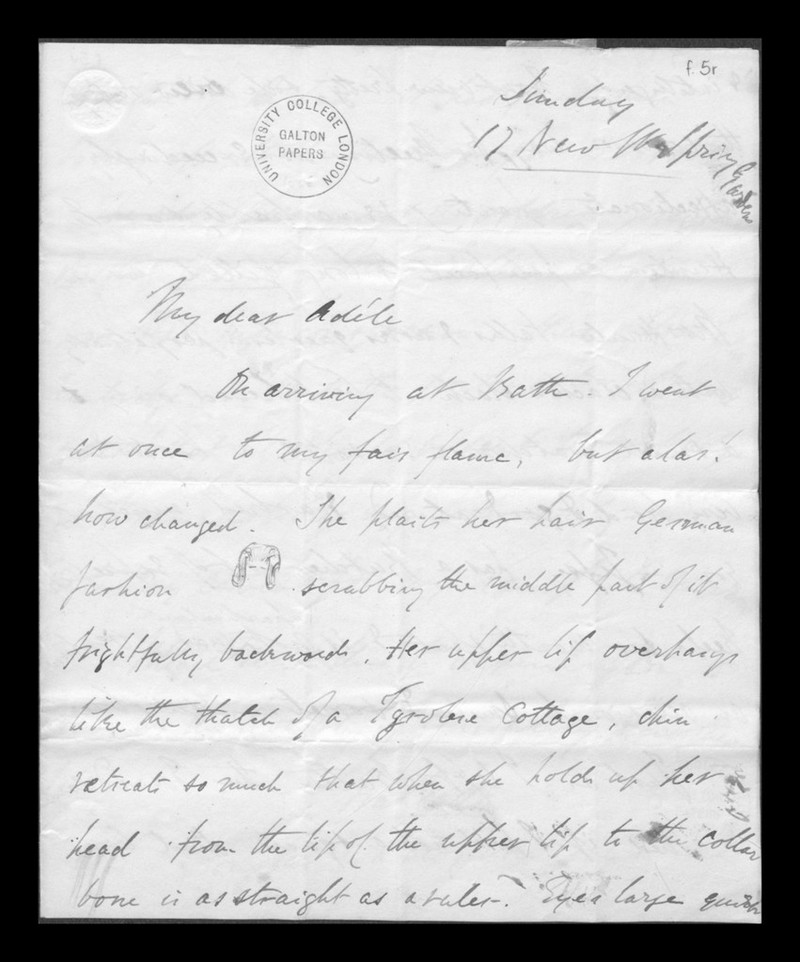 f. 5r
UNIVERSITY COLLEGE LONDON
GALTON
PAPERS
Sunday
17 New Spring Gardens
My dear Adéle
On arriving at Bath. I went
at once to my fair flame, but alas!
how changed. She plaits her hair German
fashion scrubbing the middle part of it
frightfully backwards. Her upper lip overhangs
like the thatch of a Tyrolese Cottage, chin
retreats so much that when she holds up her
head from the tip of the upper lip to the collar
bone is as straight as a ruler. Eyes large